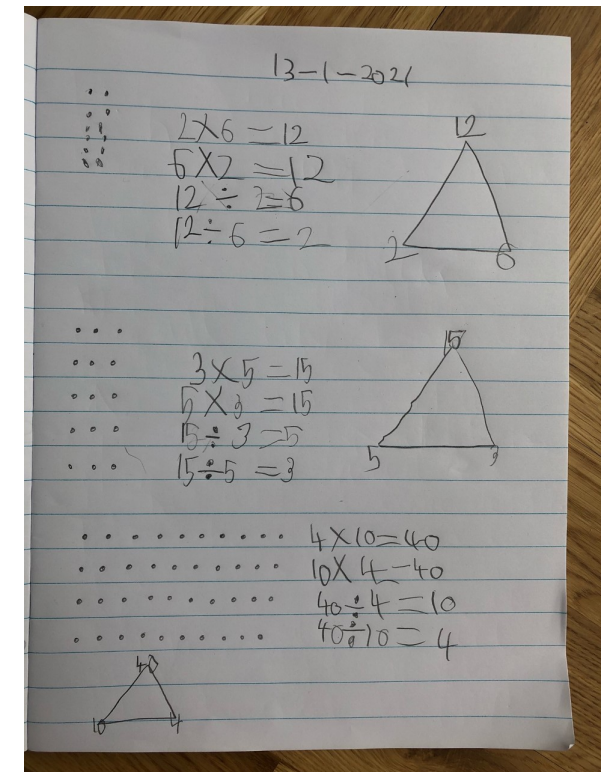 13-1-2021
2×6=12
6×2=12
12÷2=6
12÷6=2
12
2
6
3×5=15
5×3=15
15÷3=5
15÷5=3
15
5
3
4×10=40
10×4-40
40÷4=10
40÷10=4
40
10
4